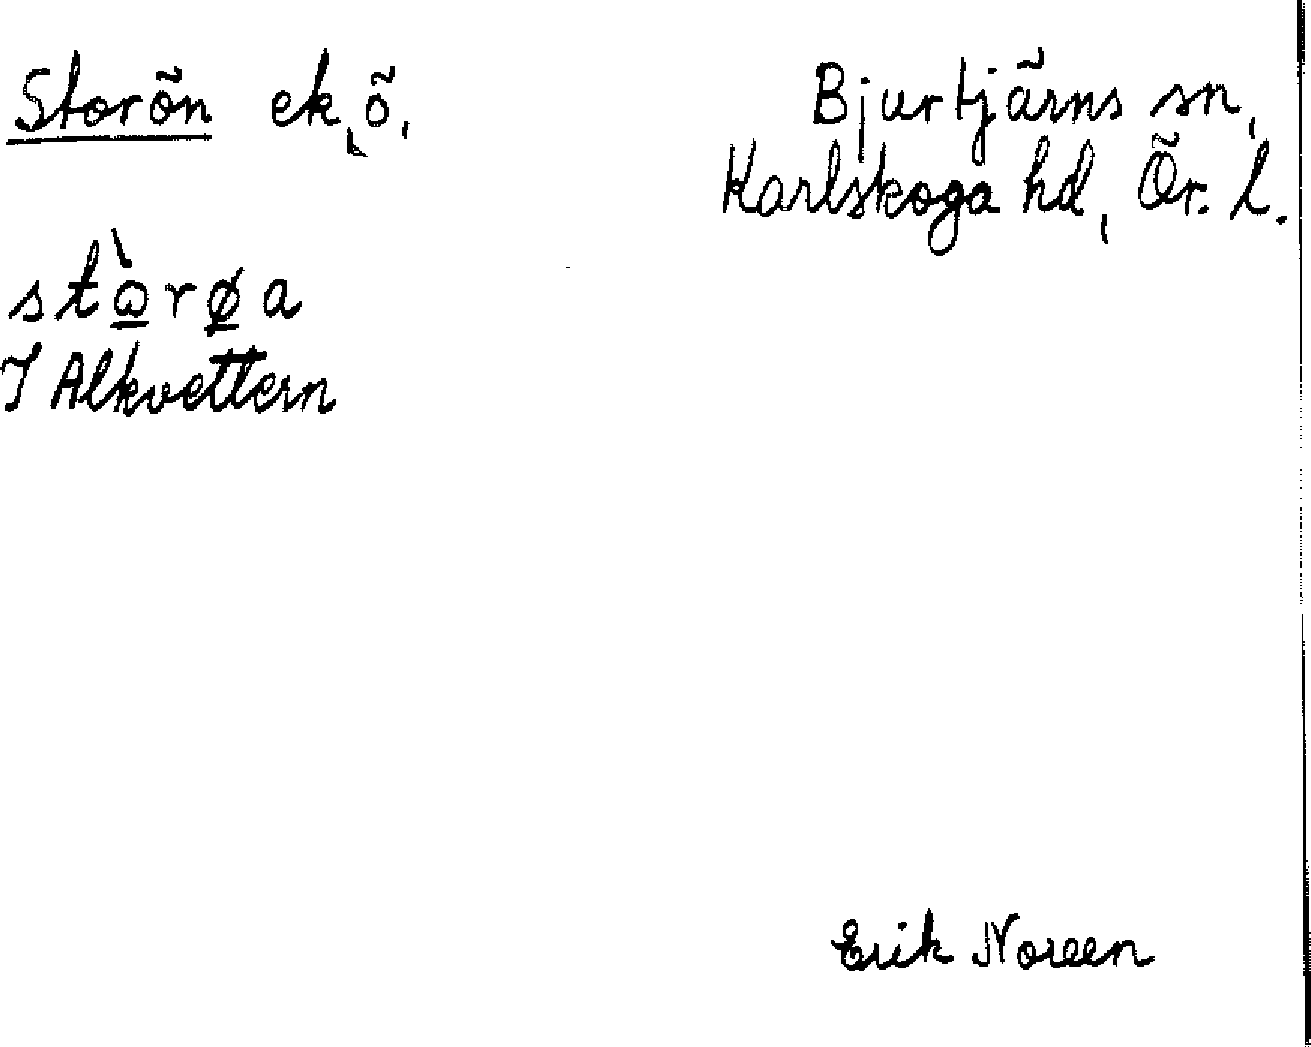 Storön ek, ö,
Bjurtjärns sn,
Karlskoga hd, Ör. l.
stὼ̲rø̲a
I Alkvettern
Erik Noreen